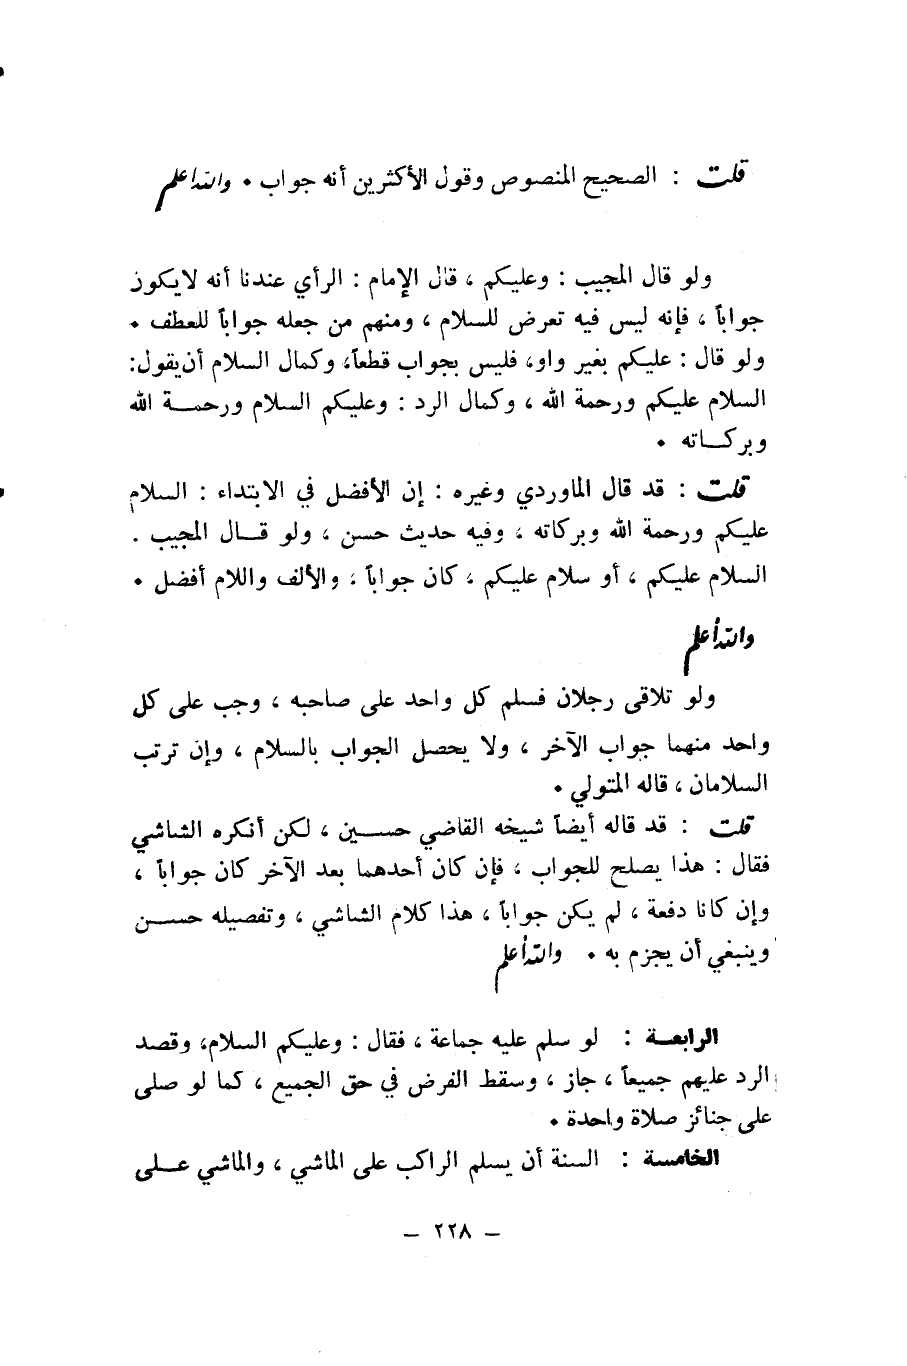 قلت : الصحيح المنصوص وقول الأكثرين أنه جواب • والله أعلم
ولو قال المجيب : وعليكم ، قال الإمام : الرأي عندنا أنه لايكون
جواباً ، فإنه ليس فيه تعرض للسلام ، ومنهم من جعله جواباً للعطف •
ولو قال : عليكم بغير واو، فليس بجواب قطعاً، وكمال السلام أن يقول:
السلام عليكم ورحمة الله ، وكمال الرد : وعليكم السلام ورحمــة الله
وبركــاته •
قلت : قد قال الماوردي وغيره : إن الأفضل في الابتداء : السلام
عليكم ورحمة الله وبركاته ، وفيه حديث حسن ، ولو قــال المجيب .
السلام عليكم ، أو سلام عليكم ، كان جواباً ، والألف واللام أفضل •
والله أعلم
ولو تلاقى رجلان فسلم كل واحد على صاحبه ، وجب على كل
واحد منهما جواب الآخر ، ولا يحصل الجواب بالسلام ، وإن ترتب
السلامان ، قاله المتولي •
قلت : قد قاله أيضاً شيخه القاضي حســين ، لكن أنكره الشاشي
فقال : هذا يصلح للجواب ، فإن كان أحدهما بعد الآخر كان جواباً ،
وإن كانا دفعة ، لم يكن جواباً ، هذا كلام الشاشي ، وتفصيله حســـن
وينبغي أن يجزم به • والله أعلم
الرابعــة : لو سلم عليه جماعة ، فقال : وعليكم السلام، وقصد
الرد عليهم جميعاً ، جاز ، وسقط الفرض في حق الجميع ، كما لو صلى
على جنائز صلاة واحدة •
الخامسة : السنة أن يسلم الراكب على الماشي ، والماشي عــلى
– ٢٢٨ –